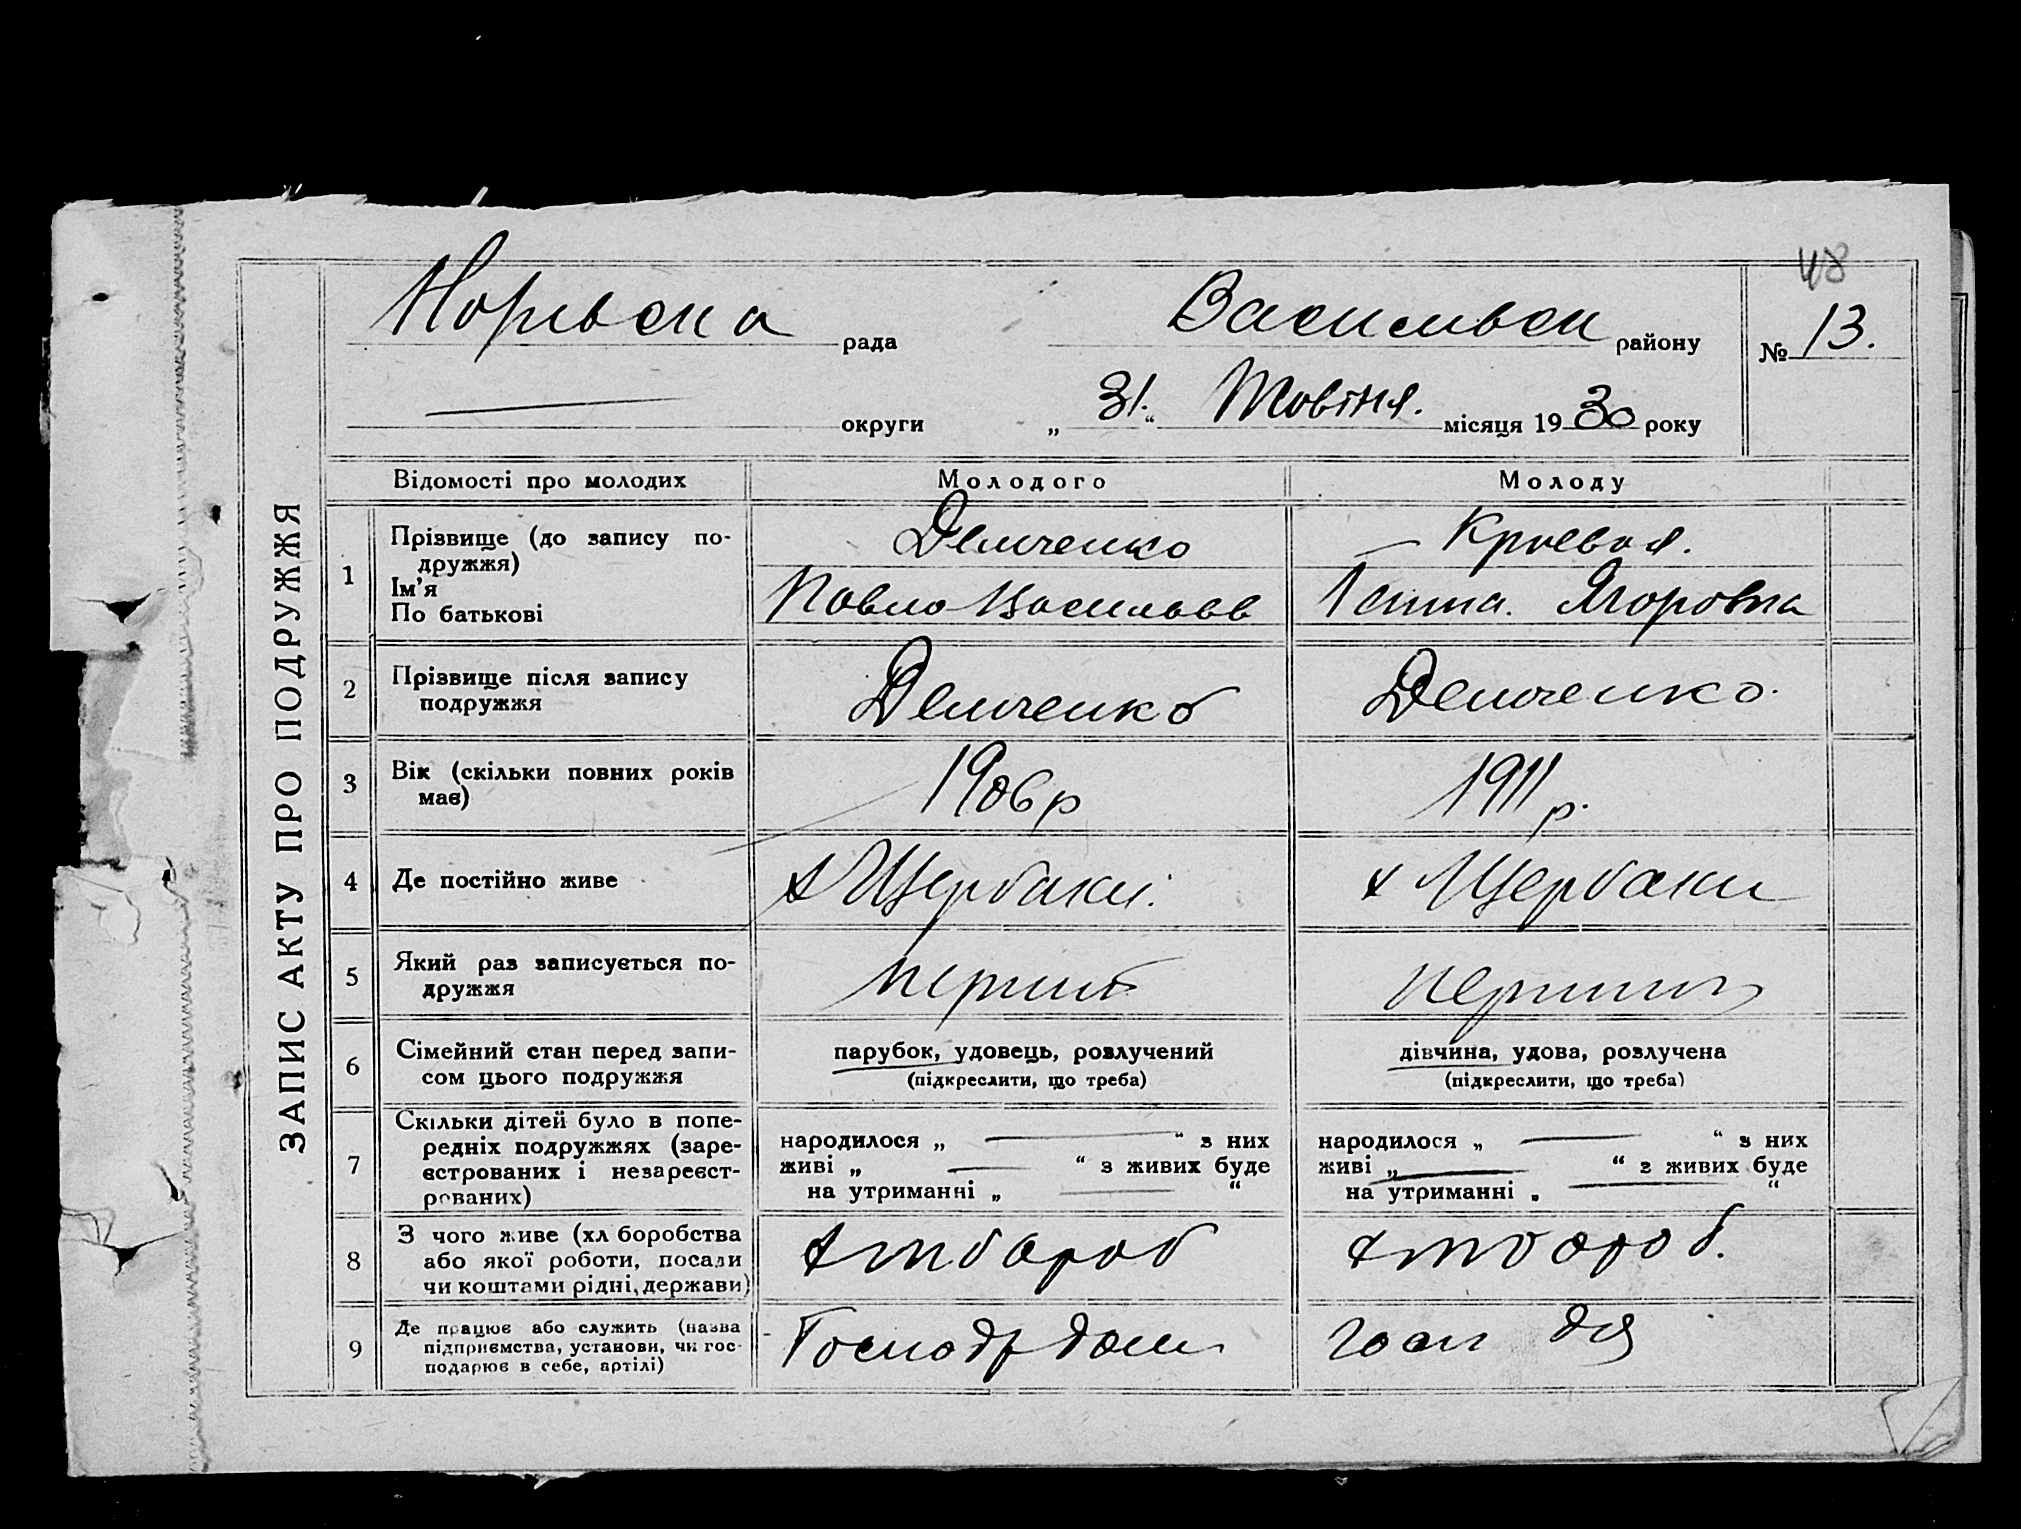 48
рада
Васильвск району
№ 13.
округи
„ 31. “ Жовтня. місяця 1930 року
ЗАПИС АКТУ ПРО ПОДРУЖЖЯ
Відомості про молодих
Молодого
Молоду
1
Прізвище (до запису по-
дружжя)
Ім'я
По батькові
Демченко
Павло Васильов
Кривая.
Ганна. Ягоровна
2
Прізвище після запису
подружжя
Демченко
Демченко.
3
Вік (скільки повних років
має)
1906р
1911р.
4
Де постійно живе
х Щербаки.
х Щербаки
5
Який раз записується по-
дружжя
перший
перший
6
Сімейний стан перед запи-
сом цього подружжя
парубок, удовець, розлучений
(підкреслити, що треба)
дівчина, удова, розлучена
(підкреслити, що треба)
7
Скільки дітей було в попе-
редніх подружжях (заре-
єстрованих і незареєст-
рованих)
народилося „ — “ з них
живі „ — “ з живих буде
на утриманні „ — “
народилося „ — “ з них
живі „ — “ з живих буде
на утриманні „ — “
8
З чого живе (хлiборобства
або якої роботи, посади
чи коштами рідні, держави)
хлібороб
хлібороб.
9
Де працює або служить (назва
підприємства, установи, чи гос-
подарює в себе, артілі)